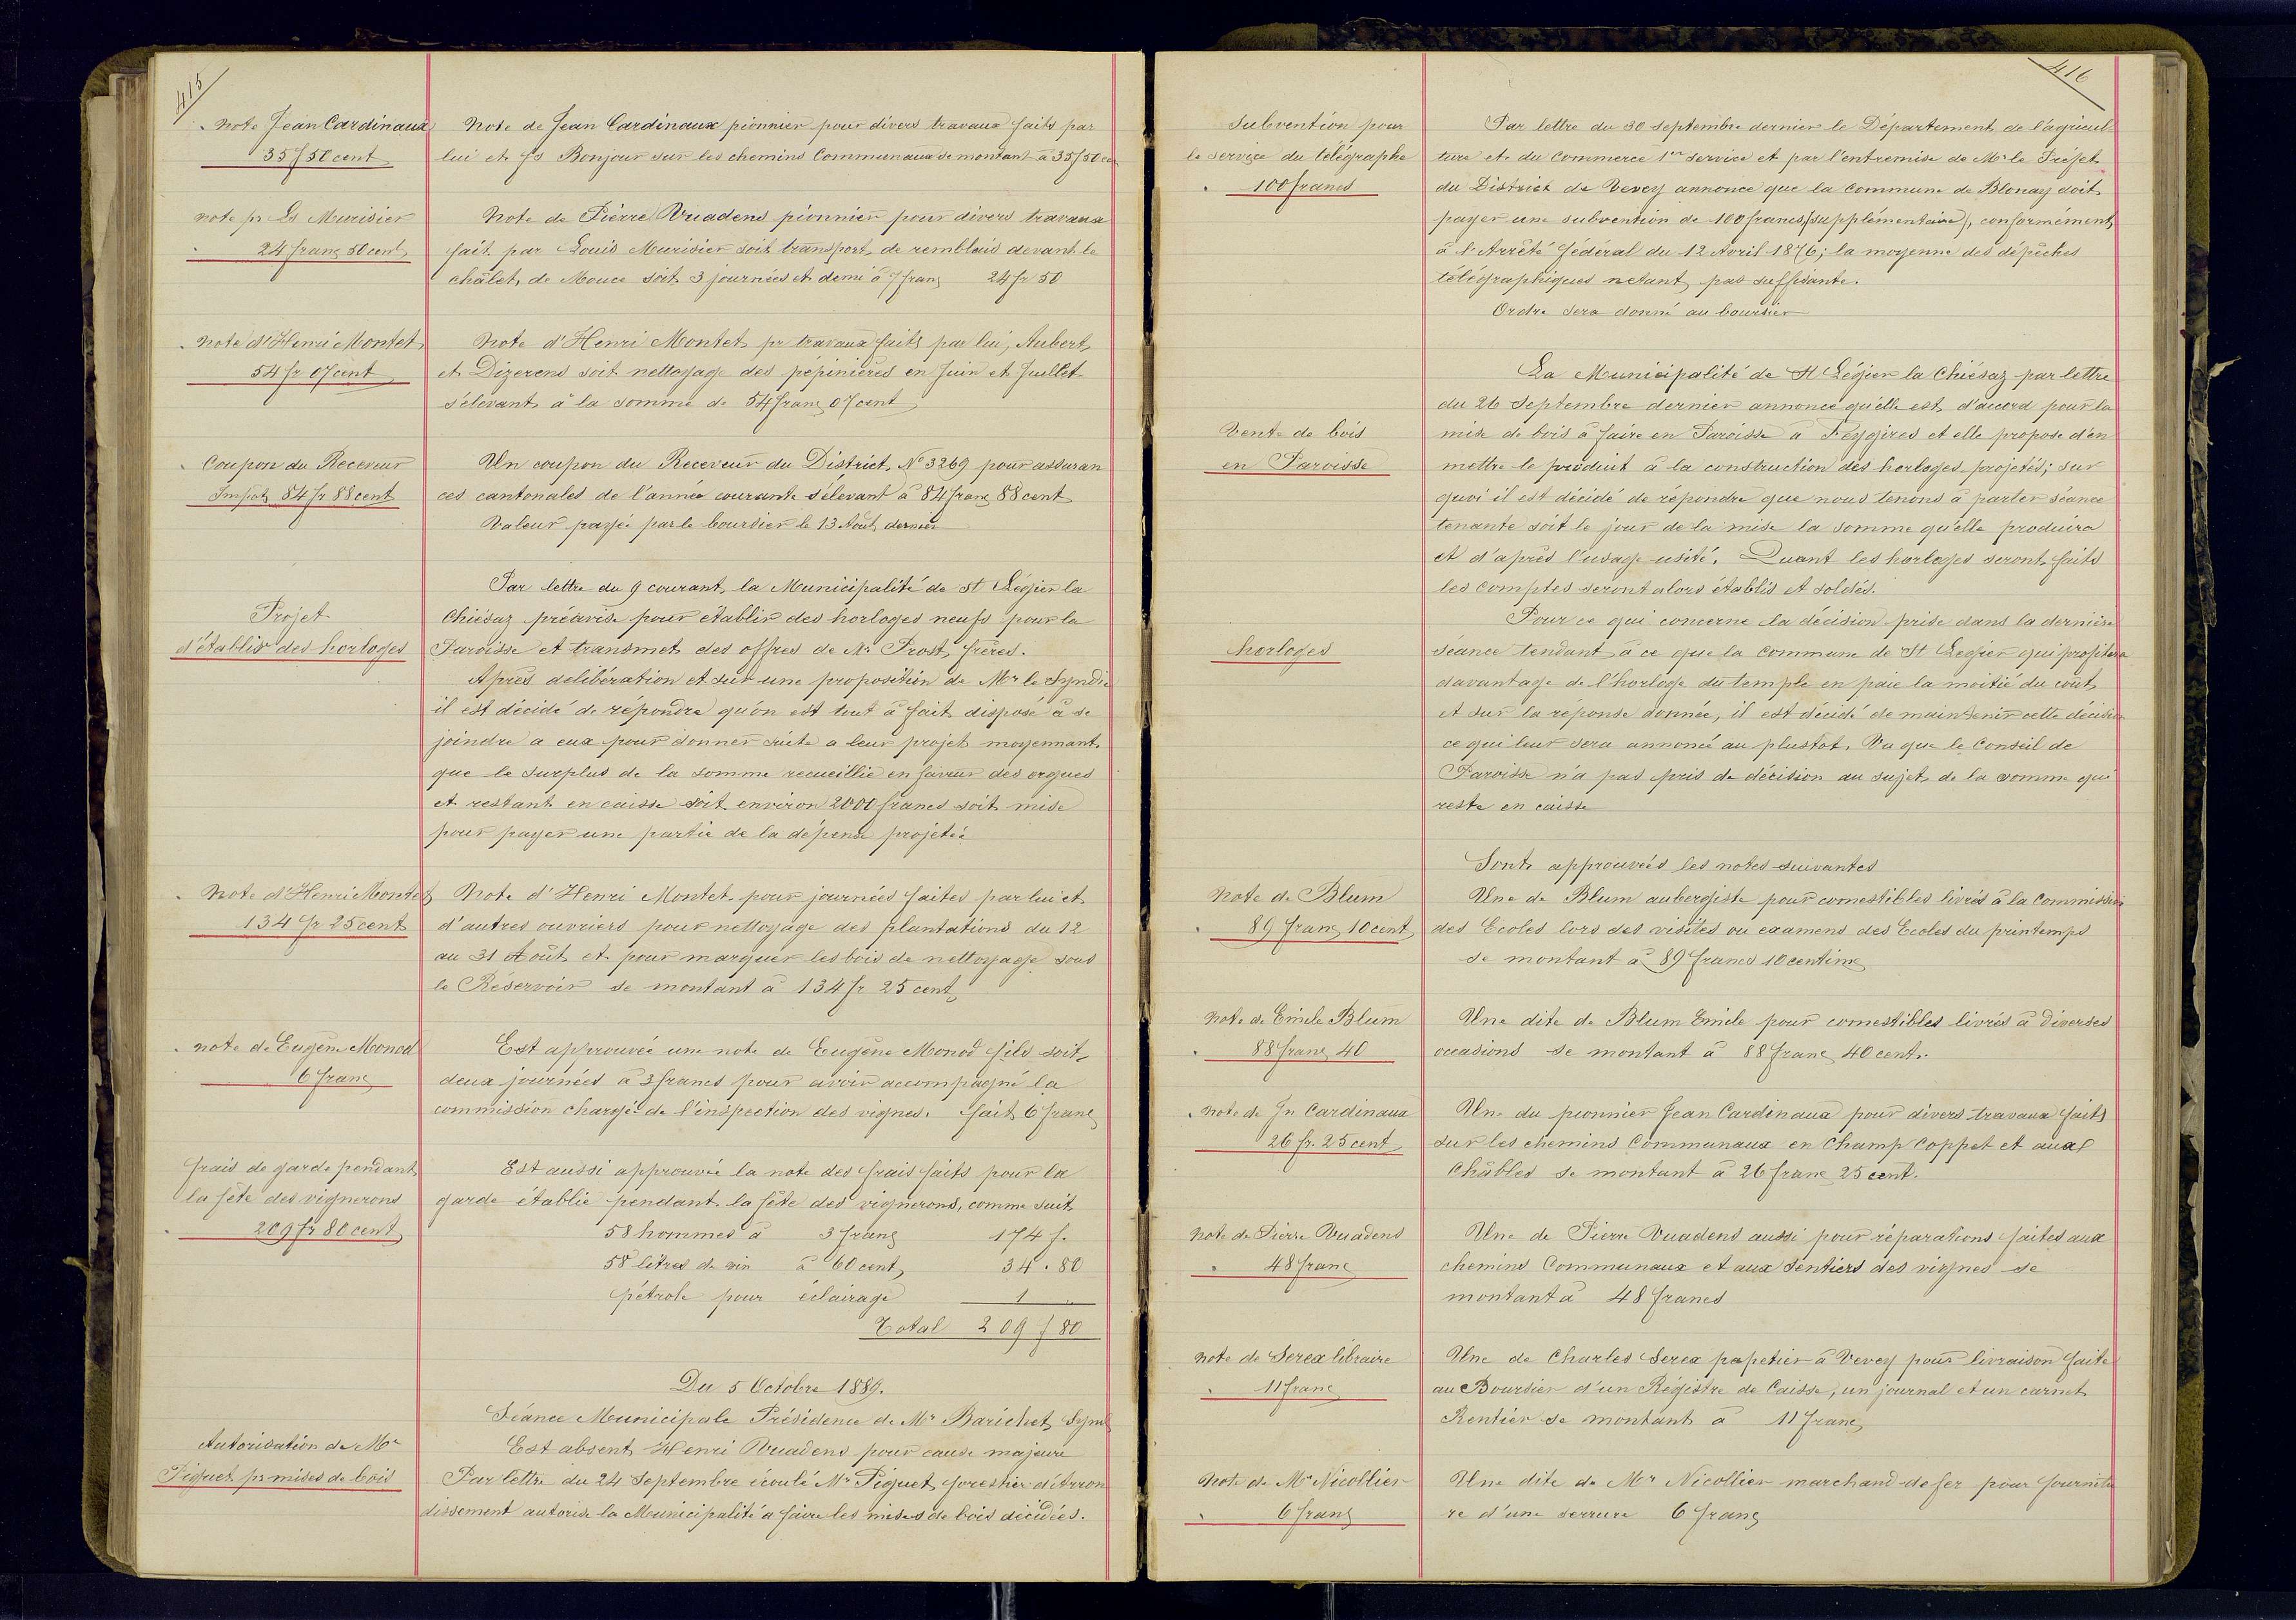 415
Note Jean Cardinaux
35 f 50 cent
Note de Jean Cardinaux pionnier pour divers travaux faits par
lui et fs Bonjour sur les chemins Communaux se montant à 35 f 50 cen
note pr Ls Murisier
24 franc 50 cent
Note de Pierre Vuadens pionnier pour divers travaux
fait par Louis Murisier soit transport de remblais devant le
châlet de Mouce soit 3 journées et demi à 7 franc 24 fr 50
note d'Henri Montet
54 fr 07 cent
Note d'Henri Montet pr travaux faits par lui, Aubert
et Dizerens soit nettoyage des pépinières en Juin et Juillet
s'élevant à la somme de 54 franc 07 cent
Coupon du Receveur
Impots 84 fr 88 cent
Un coupon du Receveur du District, No 3269 pour assuran
ces cantonales de l'année courante s'élevant à 84 franc 88 cent
Valeur payée par le boursier le 13 Août dernier
Projet
d'établir des horloges
Par lettre du 9 courant, la Municipalité de St Légier la
Chiésaz préavise pour établir des horloges neufs pour la
Paroisse et transmet des offres de Mr Prost, frères.
Après délibération et sur une proposition de Mr le Syndic
il est décidé de répondre qu'on est tout à fait disposé à se
joindre a eux pour donner suite a leur projet moyennant
que le surplus de la somme recueillie en faveur des orgues
et restant en caisse soit environ 2000 francs soit mise
pour payer une partie de la dépense projetée
Note d'Henri Montet
134 fr 25 cent
Note d'Henri Montet pour journées faites par lui et
d'autres ouvriers pour nettoyage des plantations du 12
au 31 Août et pour marquer les bois de nettoyage sous
le Réservoir se montant à 134 fr 25 cent
note de Eugène Monod
6 franc
Est approuvée une note de Eugène Monod fils soit
deux journées à 3 francs pour avoir accompagné la
commission chargée de l'inspection des vignes. fait 6 franc
frais de garde pendant
la fête des vignerons
209 fr 80 cent
Est aussi approuvée la note des frais faits pour la
garde établie pendant la fête des vignerons, comme suit
58 hommes à 3 franc 174 f.
58 litres de vin à 60 cent 34 . 80
pétrole pour éclairage 1
Total 209 f 80
Du 5 Octobre 1889.
Séance Municipale Présidence de Mr Barichet Synd
Est absent Henri Vuadens pour cause majeure
Autorisation de Mr
Piguet pr mises de bois
Par lettre du 24 Septembre écoulé Mr Piguet, forestier d'Arron
dissement autorise la Municipalité à faire les mises de bois décidées.
416
Subvention pour
le service du télégraphe
100 francs
Par lettre du 30 septembre dernier le Département de l'agricul-
ture et du Commerce 1er service et par l'entremise de Mr le Préfet
du District de Vevey annonce que la Commune de Blonay doit
payer une subvention de 100 francs, (supplémentaire), conformément
à l'Arrêté fédéral du 12 Avril 1876; la moyenne des dépêches
télégraphiques netant pas suffisante.
Ordre sera donné au boursier
La Municipalité de St Légier la Chiésaz par lettre
du 26 Septembre dernier annonce qu'elle est d'accord pour la
Vente de bois
en Paroisse
mise de bois à faire en Paroisse à Feygires et elle propose d'en
mettre le produit à la construction des horloges projetés; sur
quoi il est décidé de répondre que nous tenons à parter séance
tenante soit le jour de la mise la somme qu'elle produira
et d'après l'usage usité. Quant les horloges seront faits
les comptes seront alors établis et soldés.
horloges
Pour ce qui concerne la décision prise dans la dernière
séance tendant à ce que la Commune de St Legier qui profitera
davantage de l'horloge du temple en paie la moitié du coût
et sur la réponse donnée, il est décidé de maintenir cette décision
ce qui leur sera annoncé au plustot. Vu que le Conseil de
Paroisse n'a pas pris de décision au sujet de la somme qui
reste en caisse
Sont approuvées les notes suivantes
Note de Blum
89 franc 10 cent
Une de Blum aubergiste pour comestibles livrés à la Commission
des Ecoles lors des visites ou examens des Ecoles du printemps
se montant à 89 francs 10 centime
Note de Emile Blum
88 franc 40
Une dite de Blum Emile pour comestibles livrés à diverses
occasions se montant à 88 franc 40 cent.
note de Jn Cardinaux
26 fr. 25 cent
Une du pionnier Jean Cardinaux pour divers travaux faits
sur les chemins Communaux en Champ Coppet et aux
Châbles se montant à 26 franc 25 cent.
Note de Pierre Vuadens
48 franc
Une de Pierre Vuadens aussi pour réparations faites aux
chemins Communaux et aux sentiers des vignes se
montant à 48 francs
note de Serex libraire
11 franc
Une de Charles Serex papetier à Vevey pour livraison faite
au Boursier d'un Régistre de Caisse, un journal et un carnet
Rentier se montant à 11 franc
Note de Mr Nicollier
6 franc
Une dite de Mr Nicollier marchand de fer pour fournitu
re d'une serrure 6 franc